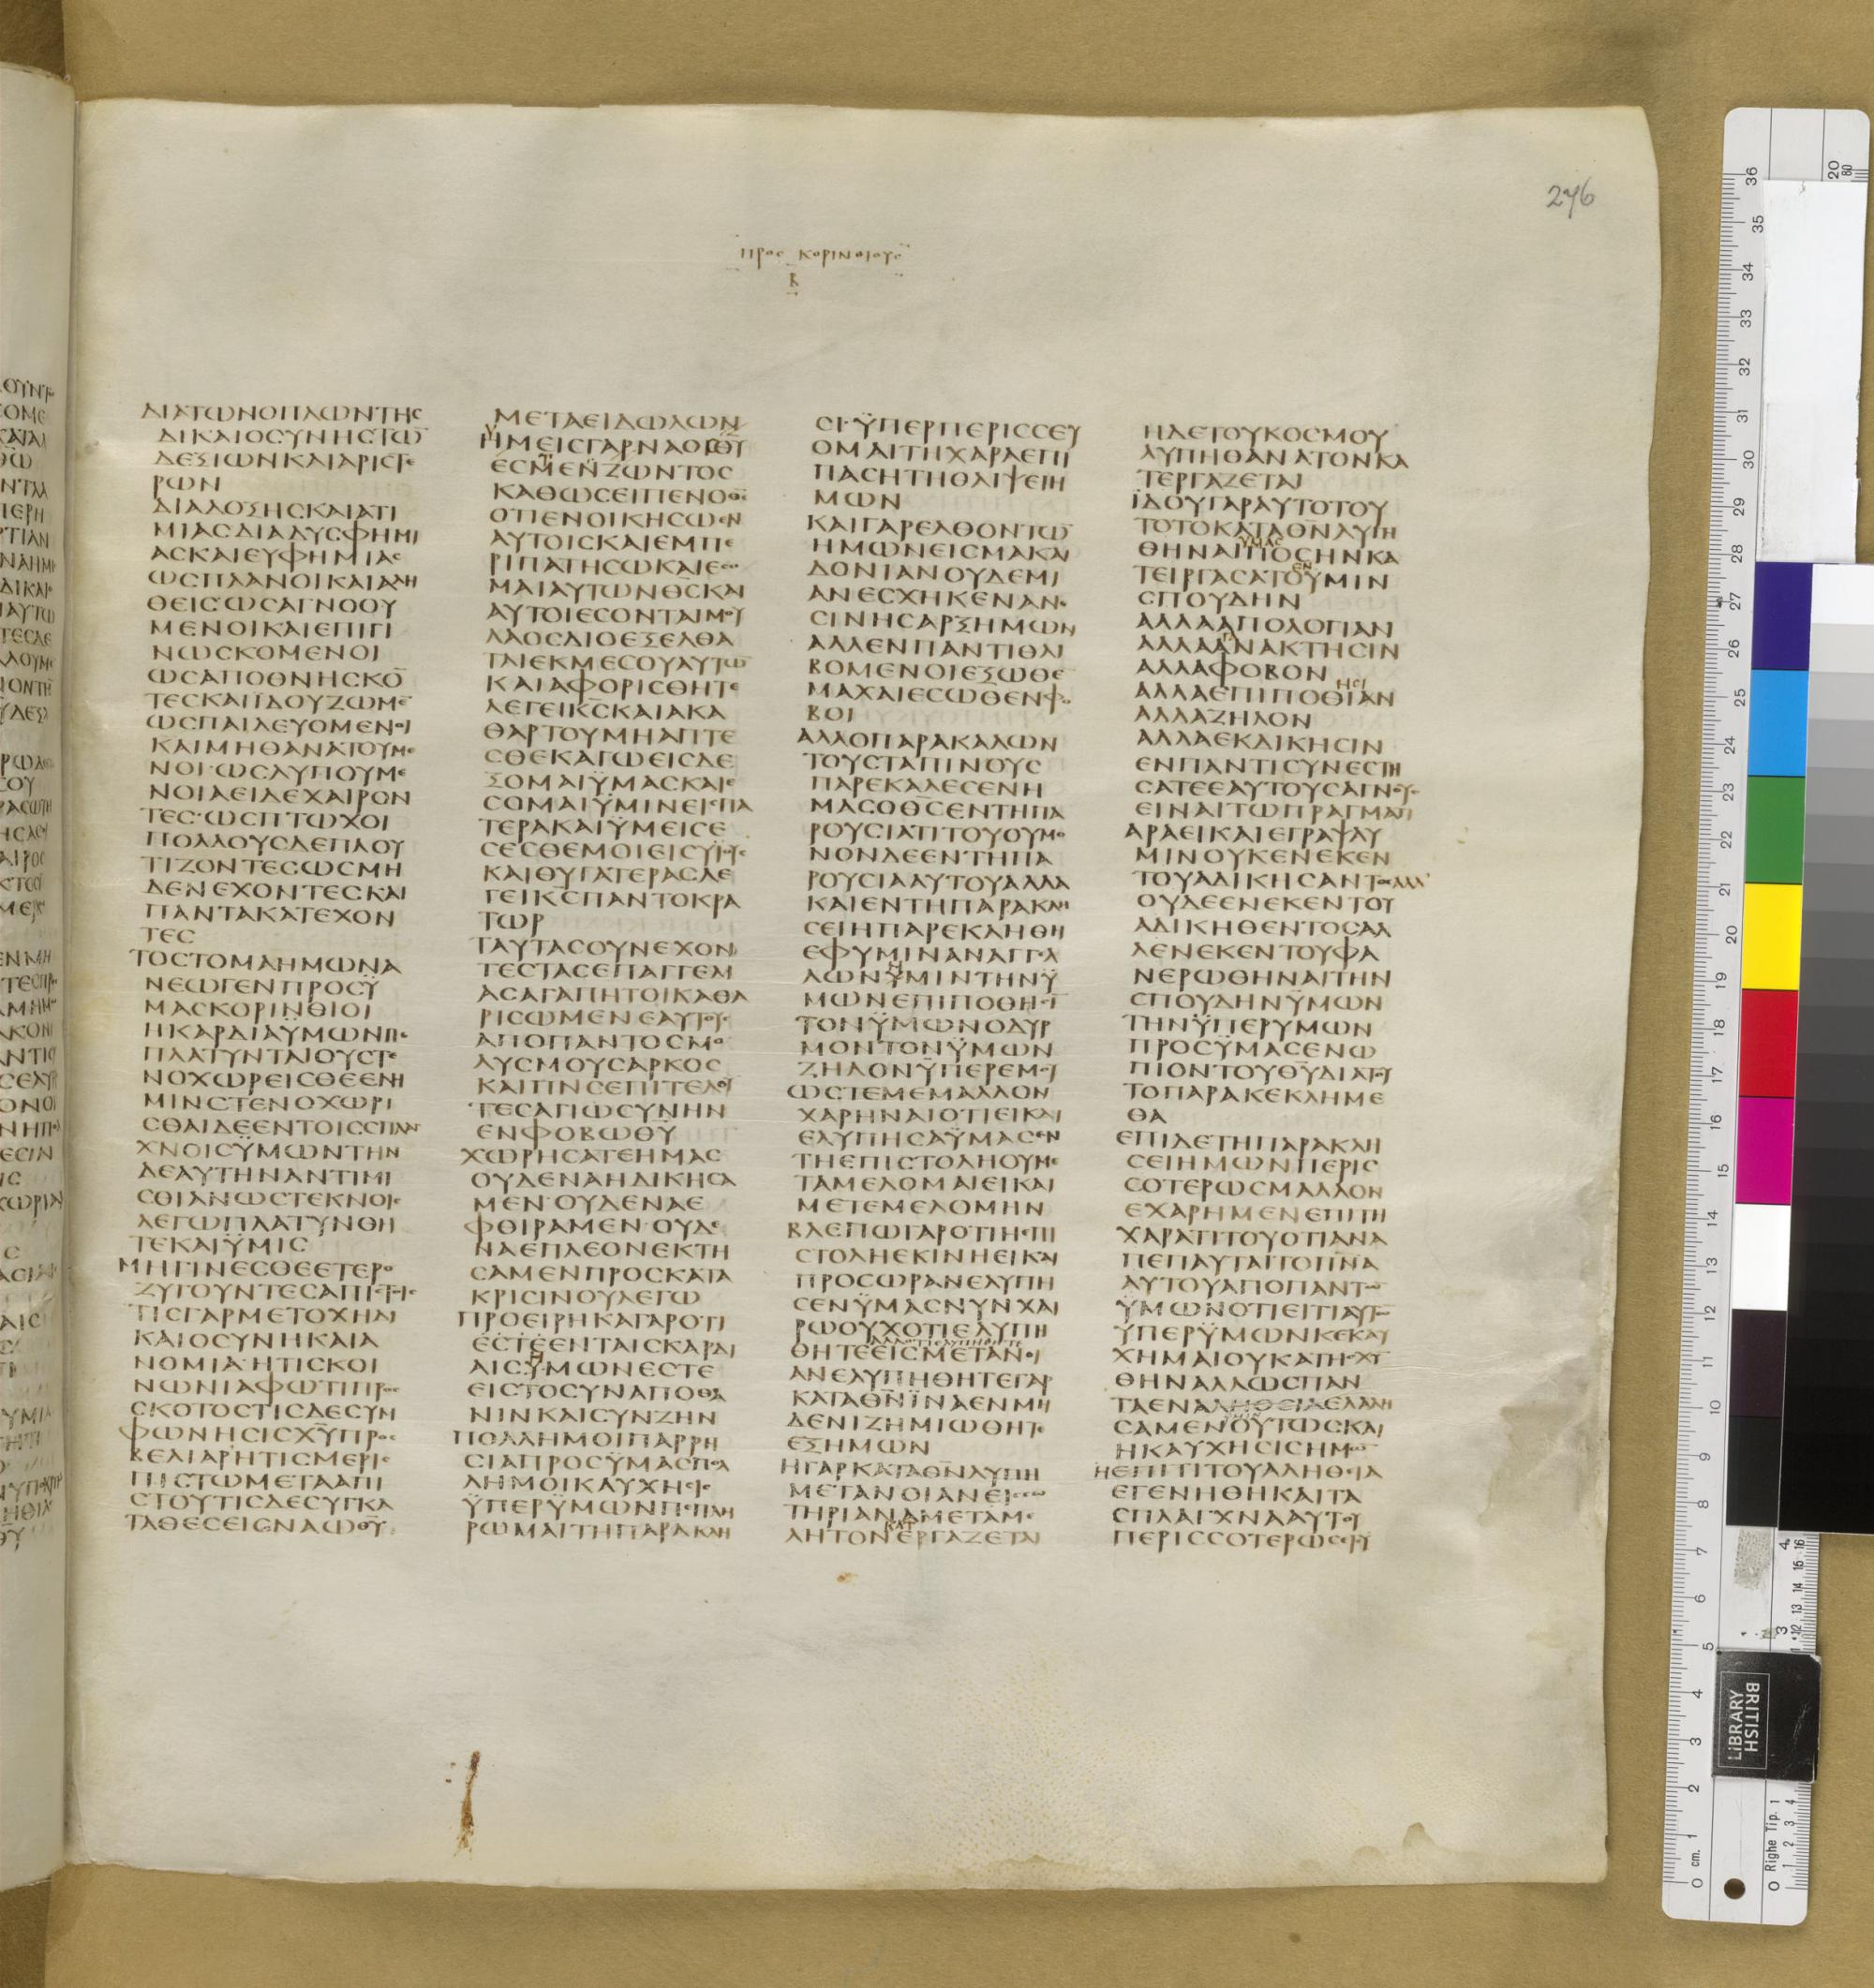 276
ΠΡΟΣ ΚΟΡΙΝΘΙΟΥΣ
Β
ΔΙΑΤΩΝΟΠΛΩΝΤΗϹ
ΔΙΚΑΙΟϹΥΝΗϹΤΩ̅
ΔΕΞΙΩΝΚΑΙΑΡΙϹΤΕ
ΡΩΝ
ΔΙΑΔΟΞΗϹΚΑΙΑΤΙ
ΜΙΑϹΔΙΑΔΥϹΦΗΜΙ
ΑϹΚΑΙΕΥΦΗΜΙΑϹ
ΩϹΠΛΑΝΟΙΚΑΙΑΛΗ
ΘΕΙϹΩϹΑΓΝΟΟΥ
ΜΕΝΟΙΚΑΙΕΠΙΓΙ
ΝΩϹΚΟΜΕΝΟΙ
ΩϹΑΠΟΘΝΗϹΚΟ̅
ΤΕϹΚΑΙΪΔΟΥΖΩΜΕ̅
ΩϹΠΑΙΔΕΥΟΜΕΝΟΙ
ΚΑΙΜΗΘΑΝΑΤΟΥΜΕ
ΝΟΙΩϹΛΥΠΟΥΜΕ
ΝΟΙΑΕΙΔΕΧΑΙΡΟΝ
ΤΕϹΩϹΠΤΩΧΟΙ
ΠΟΛΛΟΥϹΔΕΠΛΟΥ
ΤΙΖΟΝΤΕϹΩϹΜΗ
ΔΕΝΕΧΟΝΤΕϹΚΑΙ
ΠΑΝΤΑΚΑΤΕΧΟΝ
ΤΕϹ
ΤΟϹΤΟΜΑΗΜΩΝΑ
ΝΕΩΓΕΝΠΡΟϹΫ
ΜΑϹΚΟΡΙΝΘΙΟΙ
ΗΚΑΡΔΙΑΫΜΩΝΠΕ
ΠΛΑΤΥΝΤΑΙΟΥϹΤΕ
ΝΟΧΩΡΕΙϹΘΕΕΝΗ
ΜΙΝϹΤΕΝΟΧΩΡΙ
ϹΘΑΙΔΕΕΝΤΟΙϹϹΠΛΑΓ
ΧΝΟΙϹΫΜΩΝΤΗΝ
ΔΕΑΥΤΗΝΑΝΤΙΜΙ
ϹΘΙΑΝΩϹΤΕΚΝΟΙϹ
ΛΕΓΩΠΛΑΤΥΝΘΗ
ΤΕΚΑΙΫΜΙϹ
ΜΗΓΙΝΕϹΘΕΕΤΕΡΟ
ΖΥΓΟΥΝΤΕϹΑΠΙϹΤΟΙϹ
ΤΙϹΓΑΡΜΕΤΟΧΗΔΙ
ΚΑΙΟϹΥΝΗΚΑΙΑ
ΝΟΜΙΑΗΤΙϹΚΟΙ
ΝΩΝΙΑΦΩΤΙΠΡΟϹ
ϹΚΟΤΟϹΤΙϹΔΕϹΥΜ
ΦΩΝΗϹΙϹΧ̅Υ̅ΠΡΟϹ
ΒΕΛΙΑΡΗΤΙϹΜΕΡΙϹ
ΠΙϹΤΩΜΕΤΑΑΠΙ
ϹΤΟΥΤΙϹΔΕϹΥΓΚΑ
ΤΑΘΕϹΕΙϹΝΑΩΘ̅Υ̅
ΜΕΤΑΕΙΔΩΛΩΝ
ΗΜΕΙϹΓΑΡΝΑΟϹΘ̅Υ̅
ΕϹΜΕΝΖΩΝΤΟϹ
ΚΑΘΩϹΕΙΠΕΝΟΘ̅Ϲ̅
ΟΤΙΕΝΟΙΚΗϹΩΕΝ
ΑΥΤΟΙϹΚΑΙΕΜΠΕ
ΡΙΠΑΤΗϹΩΚΑΙΕϹΟ
ΜΑΙΑΥΤΩΝΘ̅Ϲ̅ΚΑΙ
ΑΥΤΟΙΕϹΟΝΤΑΙΜΟΥ
ΛΑΟϹΔΙΟΕΞΕΛΘΑ
ΤΑΙΕΚΜΕϹΟΥΑΥΤΩ̅
ΚΑΙΑΦΟΡΙϹΘΗΤΕ
ΛΕΓΕΙΚ̅Ϲ̅ΚΑΙΑΚΑ
ΘΑΡΤΟΥΜΗΑΠΤΕ
ϹΘΕΚΑΓΩΕΙϹΔΕ
ΞΟΜΑΙΫΜΑϹΚΑΙΕ
ϹΩΜΑΙΫΜΙΝΕΙϹΠΑ
ΤΕΡΑΚΑΙΫΜΕΙϹΕ
ϹΕϹΘΕΜΟΙΕΙϹΥΪΟΥϹ
ΚΑΙΘΥΓΑΤΕΡΑϹΛΕ
ΓΕΙΚ̅Ϲ̅ΠΑΝΤΟΚΡΑ
ΤΩΡ
ΤΑΥΤΑϹΟΥΝΕΧΟΝ
ΤΕϹΤΑϹΕΠΑΓΓΕΛΙ
ΑϹΑΓΑΠΗΤΟΙΚΑΘΑ
ΡΙϹΩΜΕΝΕΑΥΤΟΥϹ
ΑΠΟΠΑΝΤΟϹΜΟ
ΛΥϹΜΟΥϹΑΡΚΟϹ
ΚΑΙΠ̅Ν̅Ϲ̅ΕΠΙΤΕΛΟΥ̅
ΤΕϹΑΓΙΩϹΥΝΗΝ
ΕΝΦΟΒΩΘ̅Υ̅
ΧΩΡΗϹΑΤΕΗΜΑϹ
ΟΥΔΕΝΑΗΔΙΚΗϹΑ
ΜΕΝΟΥΔΕΝΑΕ
ΦΘΙΡΑΜΕΝΟΥΔΕ
ΝΑΕΠΛΕΟΝΕΚΤΗ
ϹΑΜΕΝΠΡΟϹΚΑΤΑ
ΚΡΙϹΙΝΟΥΛΕΓΩ
ΠΡΟΕΙΡΗΚΑΓΑΡΟΤΙ
ΕϹΤΕΕΝΤΑΙϹΚΑΡΔΙ
ΑΙϹΫΜΩΝΕϹΤΕ
ΕΙϹΤΟϹΥΝΑΠΟΘΑ
ΝΙΝΚΑΙϹΥΝΖΗΝ
ΠΟΛΛΗΜΟΙΠΑΡΡΗ
ϹΙΑΠΡΟϹΫΜΑϹΠΟΛ
ΛΗΜΟΙΚΑΥΧΗϹΙϹ
ΫΠΕΡΫΜΩΝΠΕΠΛΗ
ΡΩΜΑΙΤΗΠΑΡΑΚΛΗ
ϹΙΫΠΕΡΠΕΡΙϹϹΕΥ
ΟΜΑΙΤΗΧΑΡΑΕΠΙ
ΠΑϹΗΤΗΘΛΙΨΕΙΗ
ΜΩΝ
ΚΑΙΓΑΡΕΛΘΟΝΤΩ̅
ΗΜΩΝΕΙϹΜΑΚΑΙ
ΔΟΝΙΑΝΟΥΔΕΜΙ
ΑΝΕϹΧΗΚΕΝΑΝΕ
ϹΙΝΗϹΑΡΞΗΜΩΝ
ΑΛΛΕΝΠΑΝΤΙΘΛΙ
ΒΟΜΕΝΟΙΕΞΩΘΕ̅
ΜΑΧΑΙΕϹΩΘΕΝΦΟ
ΒΟΙ
ΑΛΛΟΠΑΡΑΚΑΛΩΝ
ΤΟΥϹΤΑΠΙΝΟΥϹ
ΠΑΡΕΚΑΛΕϹΕΝΗ
ΜΑϹΟΘ̅Ϲ̅ΕΝΤΗΠΑ
ΡΟΥϹΙΑΤΙΤΟΥΟΥΜΟ
ΝΟΝΔΕΕΝΤΗΠΑ
ΡΟΥϹΙΑΑΥΤΟΥΑΛΛΑ
ΚΑΙΕΝΤΗΠΑΡΑΚΛΗ
ϹΕΙΗΠΑΡΕΚΛΗΘΗ
ΕΦΥΜΙΝΑΝΑΓΓΕΛ
ΛΩΝΫΜΙΝΤΗΝΫ
ΜΩΝΕΠΙΠΟΘΗϹΙ̅
ΤΟΝΫΜΩΝΟΔΥΡ
ΜΟΝΤΟΝΫΜΩΝ
ΖΗΛΟΝΫΠΕΡΕΜΟΥ
ΩϹΤΕΜΕΜΑΛΛΟΝ
ΧΑΡΗΝΑΙΟΤΙΕΙΚΑΙ
ΕΛΥΠΗϹΑΫΜΑϹΕΝ
ΤΗΕΠΙϹΤΟΛΗΟΥΜΕ
ΤΑΜΕΛΟΜΑΙΕΙΚΑΙ
ΜΕΤΕΜΕΛΟΜΗΝ
ΒΛΕΠΩΓΑΡΟΤΙΗΕΠΙ
ϹΤΟΛΗΕΚΙΝΗΕΙΚΑΙ
ΠΡΟϹΩΡΑΝΕΛΥΠΗ
ϹΕΝΫΜΑϹΝΥΝΧΑΙ
ΡΩΟΥΧΟΤΙΕΛΥΠΗ
ΑΛΛΟΤΙΕΛΥΠΗΘΗΤΕ
ΘΗΤΕΕΙϹΜΕΤΑΝΟΙ
ΑΝΕΛΥΠΗΘΗΤΕΓΑΡ
ΚΑΤΑΘ̅Ν̅ΪΝΑΕΝΜΗ
ΔΕΝΙΖΗΜΙΩΘΗΤΕ
ΕΞΗΜΩΝ
ΗΓΑΡΚΑΤΑΘ̅Ν̅ΛΥΠΗ
ΜΕΤΑΝΟΙΑΝΕΙϹϹΩ
ΤΗΡΙΑΝΑΜΕΤΑΜΕ
ΚΑΤ
ΛΗΤΟΝΕΡΓΑΖΕΤΑΙ
ΗΔΕΤΟΥΚΟϹΜΟΥ
ΛΥΠΗΘΑΝΑΤΟΝΚΑ
ΤΕΡΓΑΖΕΤΑΙ
ΪΔΟΥΓΑΡΑΥΤΟΤΟΥ
ΤΟΤΟΚΑΤΑΘ̅Ν̅ΛΥΠΗ
ΥΜΑϹ
ΘΗΝΑΙΠΟϹΗΝΚΑ
ΕΝ
ΤΕΙΡΓΑϹΑΤΟΫΜΙΝ
ϹΠΟΥΔΗΝ
ΑΛΛΑΑΠΟΛΟΓΙΑΝ
ΑΛΛΑΑΝΑΚΤΗϹΙΝ
ΑΛΛΑΦΟΒΟΝ
ΗϹΙ
ΑΛΛΑΕΠΙΠΟΘΙΑΝ
ΑΛΛΑΖΗΛΟΝ
ΑΛΛΑΕΚΔΙΚΗϹΙΝ
ΕΝΠΑΝΤΙϹΥΝΕϹΤΗ
ϹΑΤΕΕΑΥΤΟΥϹΑΓΝΟΥϹ
ΕΙΝΑΙΤΩΠΡΑΓΜΑΤΙ
ΑΡΑΕΙΚΑΙΕΓΡΑΨΑΥ
ΜΙΝΟΥΚΕΝΕΚΕΝ
ΤΟΥΑΔΙΚΗϹΑΝΤΟϹΑΛΛ
ΟΥΔΕΕΝΕΚΕΝΤΟΥ
ΑΔΙΚΗΘΕΝΤΟϹΑΛ
ΛΕΝΕΚΕΝΤΟΥΦΑ
ΝΕΡΩΘΗΝΑΙΤΗΝ
ϹΠΟΥΔΗΝΫΜΩΝ
ΤΗΝΫΠΕΡΥΜΩΝ
ΠΡΟϹΫΜΑϹΕΝΩ
ΠΙΟΝΤΟΥΘ̅Υ̅ΔΙΑΤΟΥ
ΤΟΠΑΡΑΚΕΚΛΗΜΕ
ΘΑ
ΕΠΙΔΕΤΗΠΑΡΑΚΛΗ
ϹΕΙΗΜΩΝΠΕΡΙϹ
ϹΟΤΕΡΩϹΜΑΛΛΟΝ
ΕΧΑΡΗΜΕΝΕΠΙΤΗ
ΧΑΡΑΤΙΤΟΥΟΤΙΑΝΑ
ΠΕΠΑΥΤΑΙΤΟΠ̅Ν̅Α̅
ΑΥΤΟΥΑΠΟΠΑΝΤΩ̅
ΫΜΩΝΟΤΙΕΙΤΙΑΥΤΩ
ΫΠΕΡΫΜΩΝΚΕΚΑΥ
ΧΗΜΑΙΟΥΚΑΤΗϹΧΥ̅
ΘΗΝΑΛΛΩϹΠΑΝ
ΤΑΕΝΑΛΗΘΕΙΑΕΛΑΛΗ
ϹΑΜΕΝΟΥΤΩϹΚΑΙ
ΗΚΑΥΧΗϹΙϹΗΜΩ̅
ΗΕΠΙΤΙΤΟΥΑΛΗΘΕΙΑ
ΕΓΕΝΗΘΗΚΑΙΤΑ
ϹΠΛΑΓΧΝΑΑΥΤΟΥ
ΠΕΡΙϹϹΟΤΕΡΩϹΕΙϹΫ
BRITISH
LIBRARY
0 Righe Tip. 1
0 cm. 1